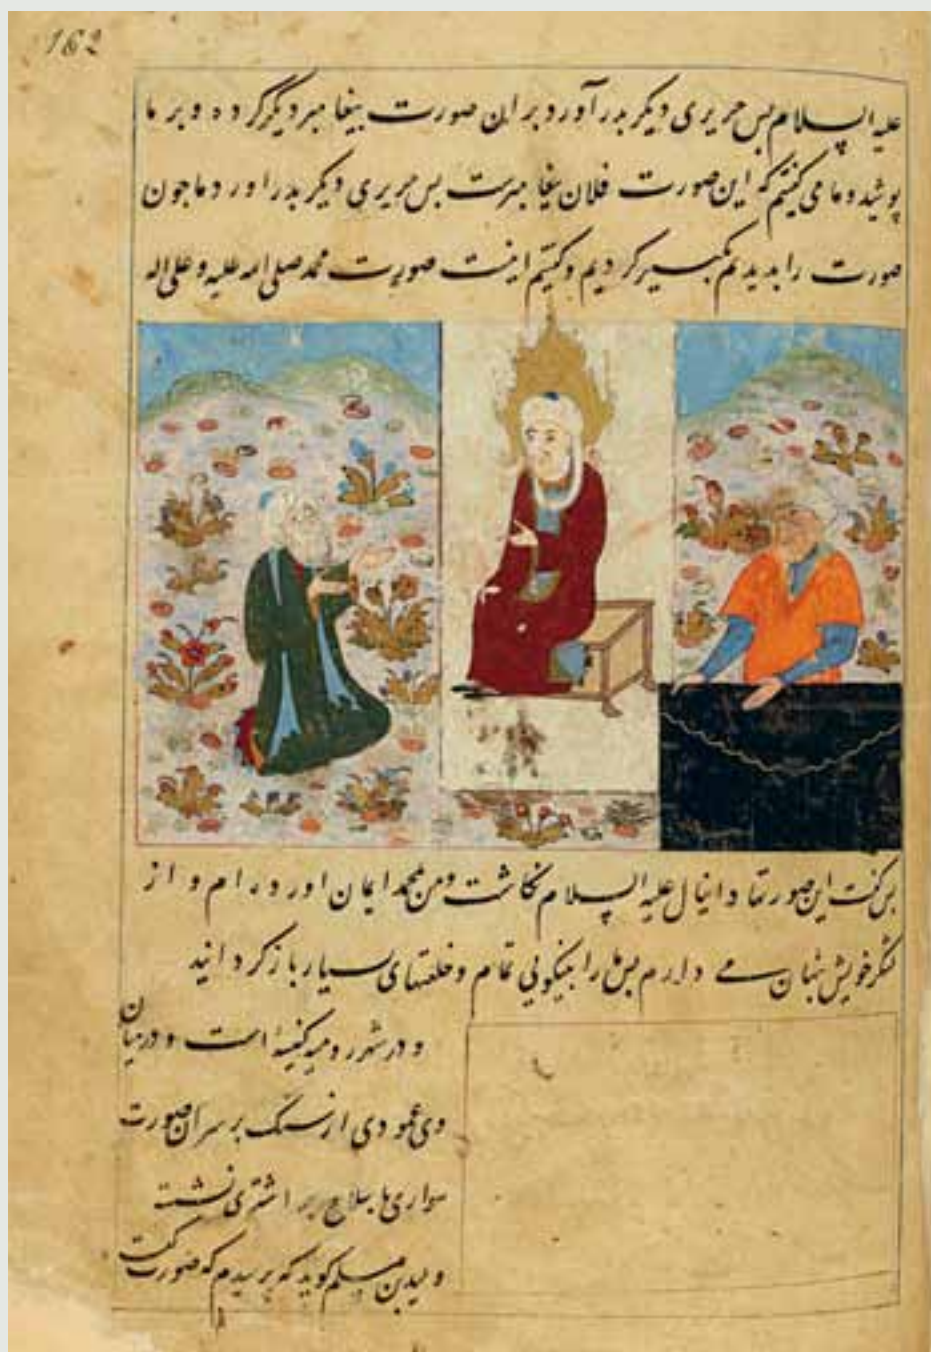 162
علیه السلام بس حریری دیکر بدر آورد بران صورت بیغامبر دیگر کرده و بر ما
پوشید و ما می کفتیم که این صورت فلان بیغامبرست بس حریری دیکر بدر اورد ما جون
صورت را بدیدیم تکبیر کردیم و کفتیم اینت صورت محمد صلی الله علیه و علی اله
بس کفت این صورتها دانیال علیه السلام نکاشت و من بمحمد ایمان اور درام و از
لشکر خویش بنهان می دارم بس ما را بنیکویی تمام و خلعتهای بسیار باز کردانید
و در شهر رومیه کنیسۀ است و در میان
وی عمودی از سنک بر سر آن صورت
سواری با سلاح بر اشتری نشسته
ولید بن مسلم کوید که برسیدم که صورت کیست